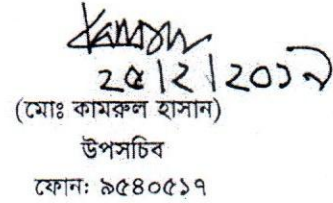 ২৫|২|২০১৯
(মোঃ কামরুল হাসান)
উপসচিব
ফোন: ৯৫৪০৫১৭